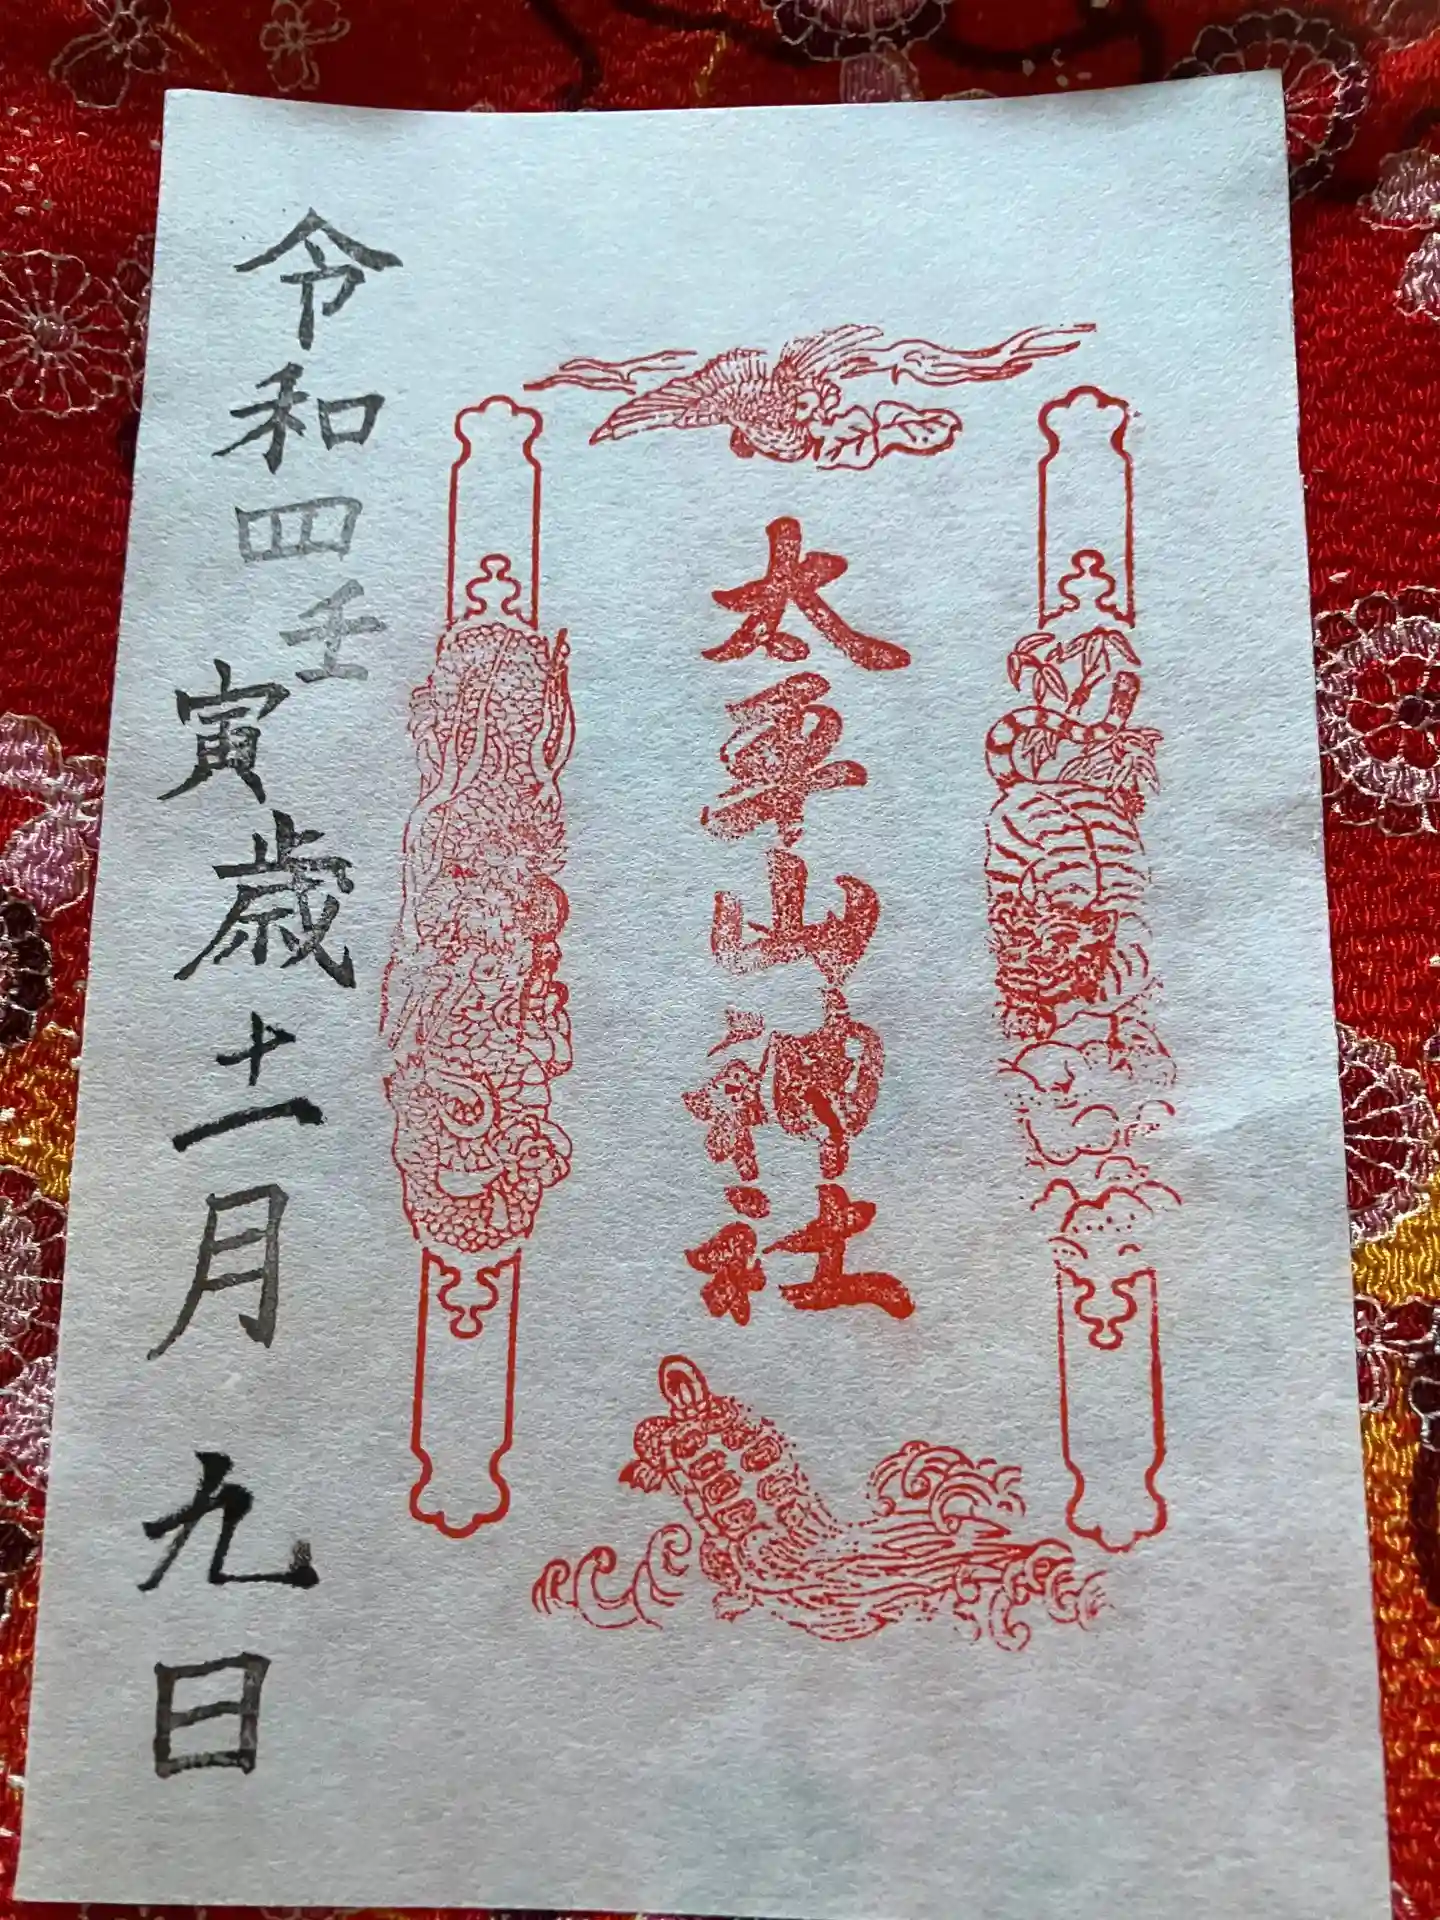 太平山神社
令和四壬寅歳十一月九日